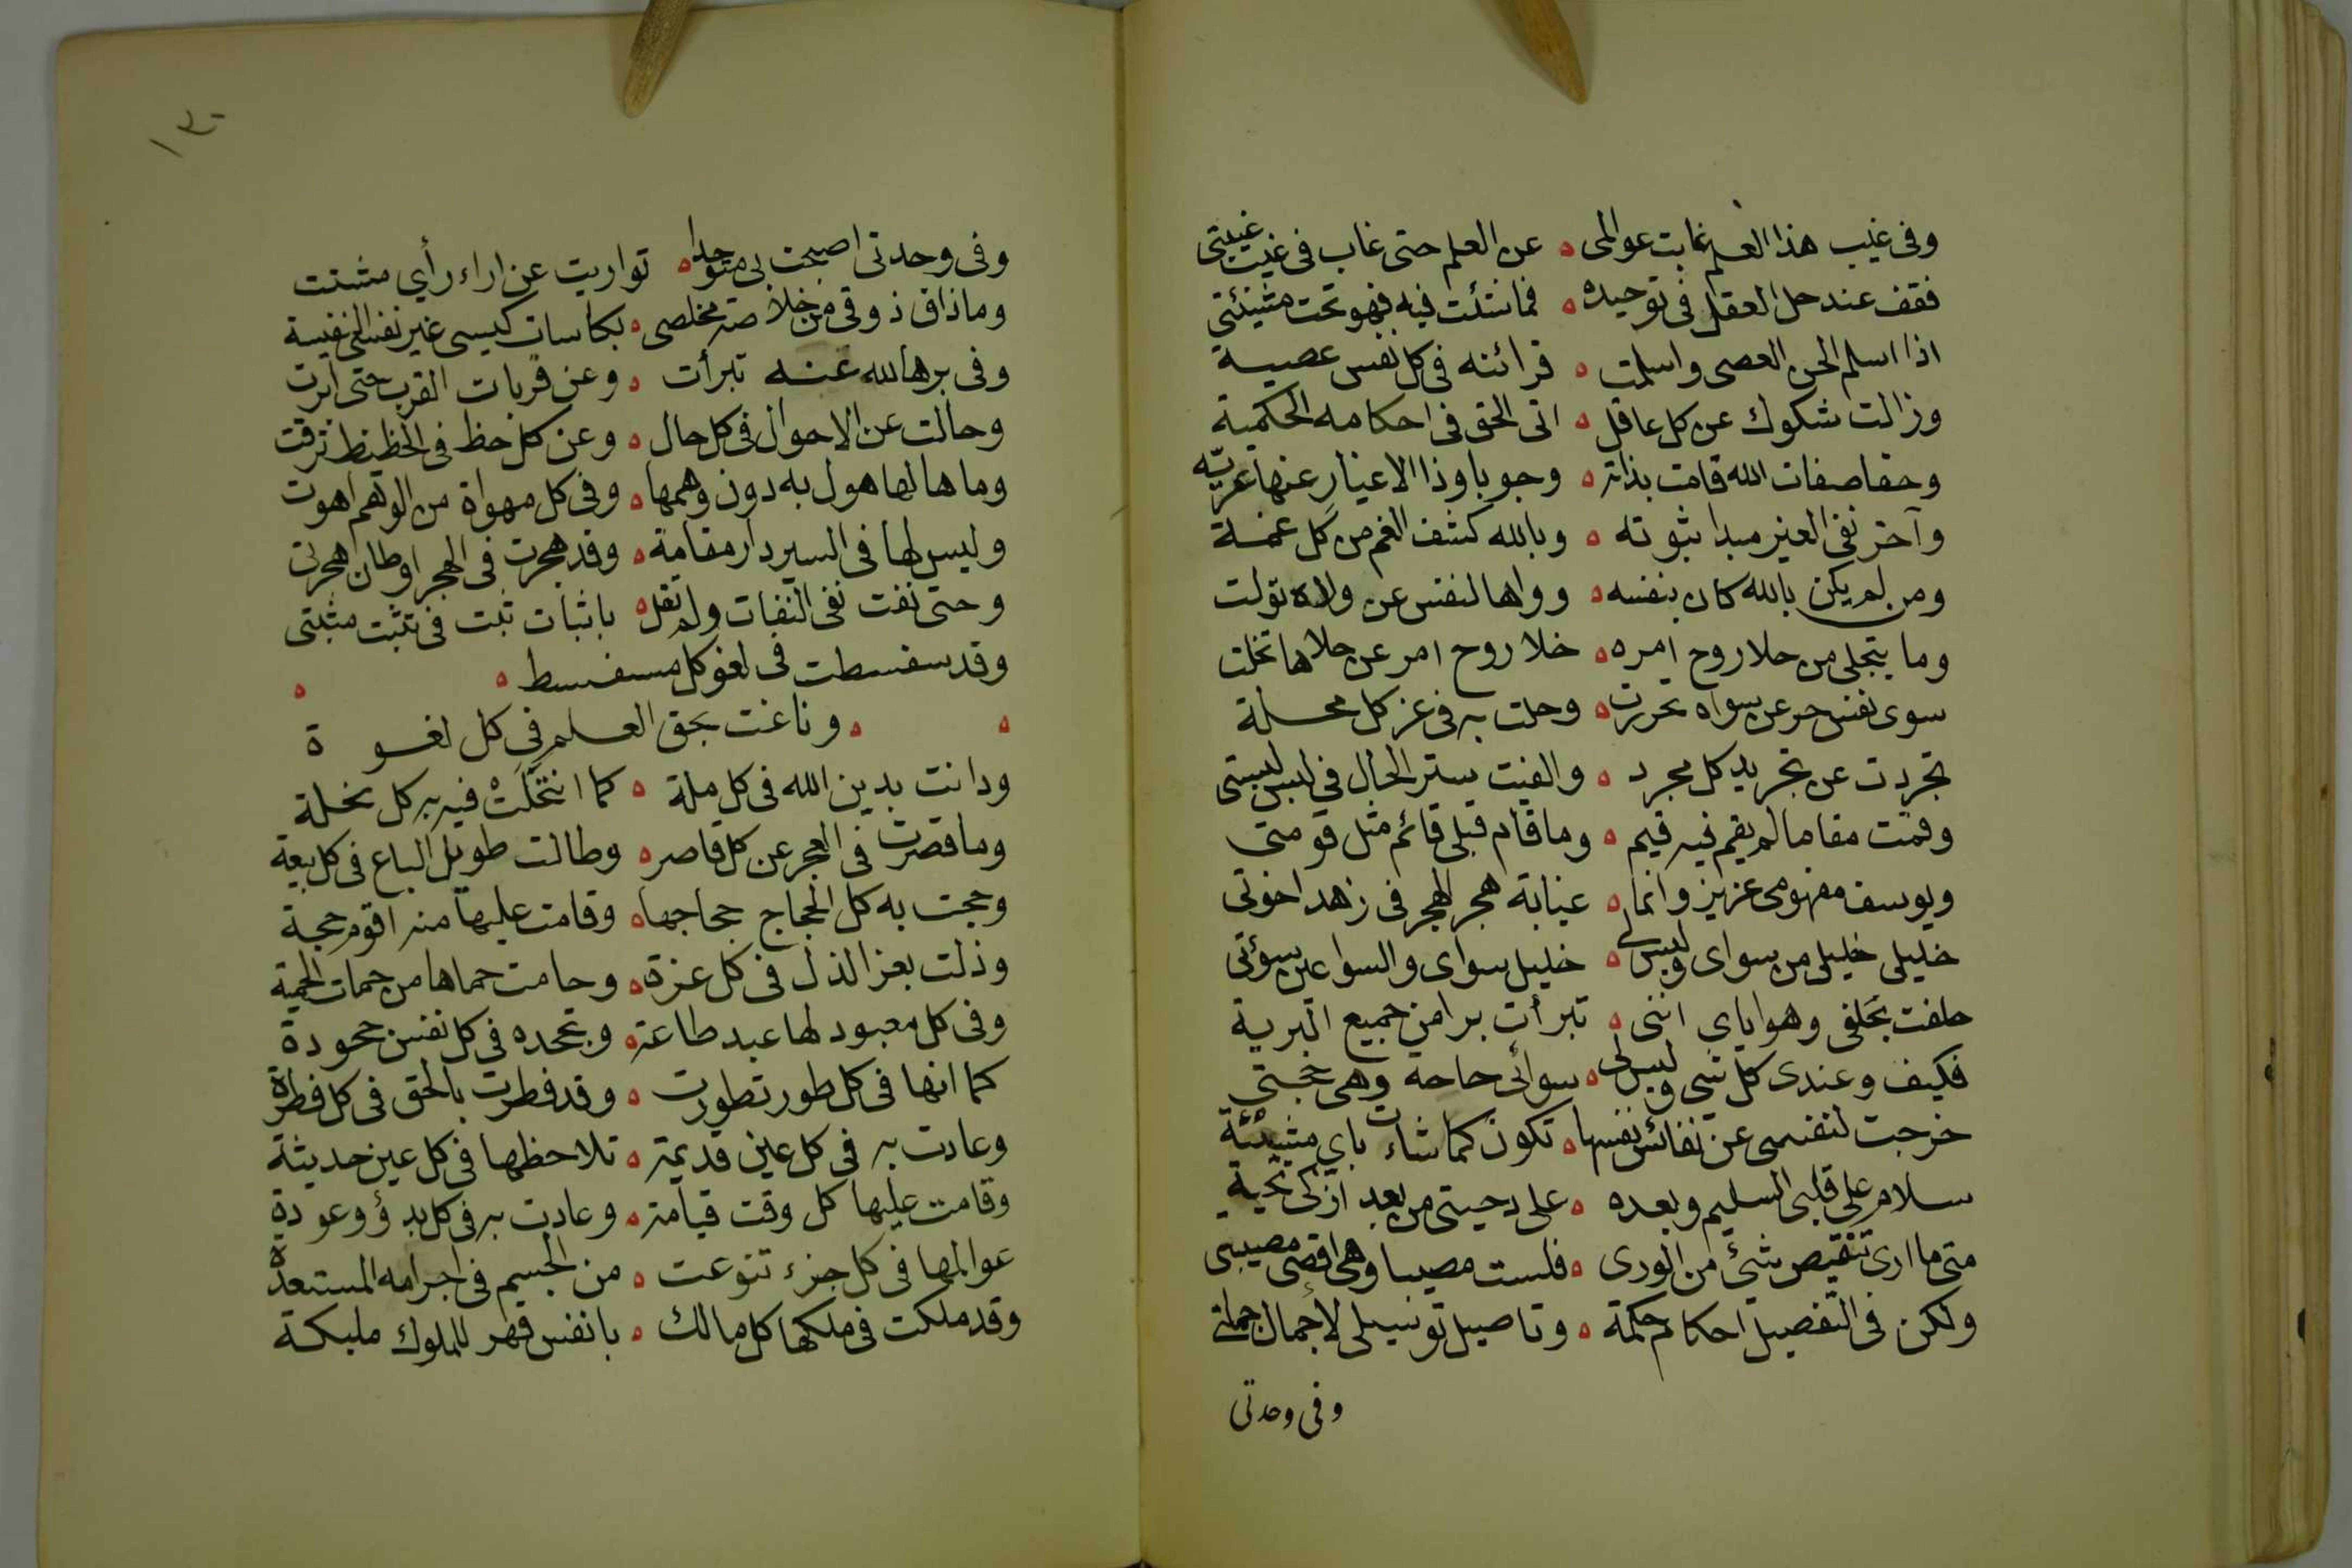 وفى غيب هذا العلم غابت عوالمى ه عن العلم حتى غاب فى غيب غيبتى
فقف عند حل العقل فى توحيده ه فما شئت فيه فهو تحت مشيئتى
اذا اسلم الحى العصى واسلمت ه قرائنه فى كل نفس عصية
وزالت شكوك عن كل عاقل ه اتى الحق فى احكامه الحكمية
وحقا صفات الله قامت بذاته ه وجوبا وذا الاغيار عنها عرية
وآخر نفى الغير مبدا ثبوته ه وبالله كشف الغم من كل غمة
ومن لم يكن بالله كان بنفسه ه وواها لنفس عن ولاه تولت
وما يتجلى من حلا روح امره ه خلا روح امر عن حلاها تخلت
سوى نفس حر عن سواه تحررت ه وحلت به فى عز كل محلة
تجردت عن تجريد كل مجرد ه والفيت ستر الحال فى لبس لبستى
وقمت مقاما لم يقم فيه قيم ه وما قام قبلى قائم مثل قومتى
ويوسف مفهومى عزيز وانما ه غيابة هجر الهجر فى زهد اخوتى
خليلى خليلى من سواى وليس لى ه خليل سواى والسوا عين سوئتى
حلفت بخلفى وهو اياى اننى ه تبرأت برا من جميع البرية
فكيف وعندى كل شى وليس لى ه سوائى حاجة وهى حجتى
خرجت لنفسى عن نفائس نفسها ه تكون كما شاءت باى مشيئة
سلام على قلبى السليم وبعده ه على رحيتى من بعد ازكى تحية
متى ما ارى تنقيص شئ من الورى ه فلست مصيبا وهى اقصى مصيبتى
ولكن فى التفصيل احكام حكمة ه وتاصيل توسيلى لاجمال جملتى
وفى وحدتى
١٣٠
وفى وحدتى اصبحت بى متوحدا ه تواريت عن اراء رأي مشتت
وماذاق ذوقى من خلاصة مخلصى ه بكاسات كيسى غير نفسى النفيسة
وفى برها لله عنه تبرأت ه وعن قربات القرب حتى ابرت
وحالت عن الاحوال فى كل حال ه وعن كل حظ فى الحظيظ ترقت
وما هالها هول به دون وهمها ه وفى كل مهواة من الوهم اهوت
وليس لها فى السير دار مقامة ه وقد هجرت فى الهجر اوطان هجرتى
وحتى نفت نفى النفات ولم تقل ه باثبات ثبت فى تثبت مثبتى
وقد سفسطت فى لغو كل مسفسط ه ه
ه ه وناغت بحق العلم فى كل لغوة
ودانت بدين الله فى كل ملة ه كما انتحلت فيه به كل نحلة
وما قصرت فى العجز عن كل قاصر ه وطالت طويل الباع فى كل بيعة
وحجت به كل الحجاج حجاجها ه وقامت عليها منه اقوم حجة
وذلت بعز الذل فى كل عزة ه وحامت حماها من حمات الحمية
وفى كل معبود لها عبد طاعة ه وتجحده فى كل نفس جحودة
كما انها فى كل طور تطورت ه وقد فطرت بالحق فى كل فطرة
وعادت به فى كل عين قديمة ه تلاحظها فى كل عين حديثة
وقامت عليها كل وقت قيامة ه وعادت به فى كل بدؤ وعودة
عوالمها فى كل جزء تنوعت ه من الجسم فى اجرامه المستعدة
وقد ملكت فى ملكها كل مالك ه بانفس قهر للملوك مليكة